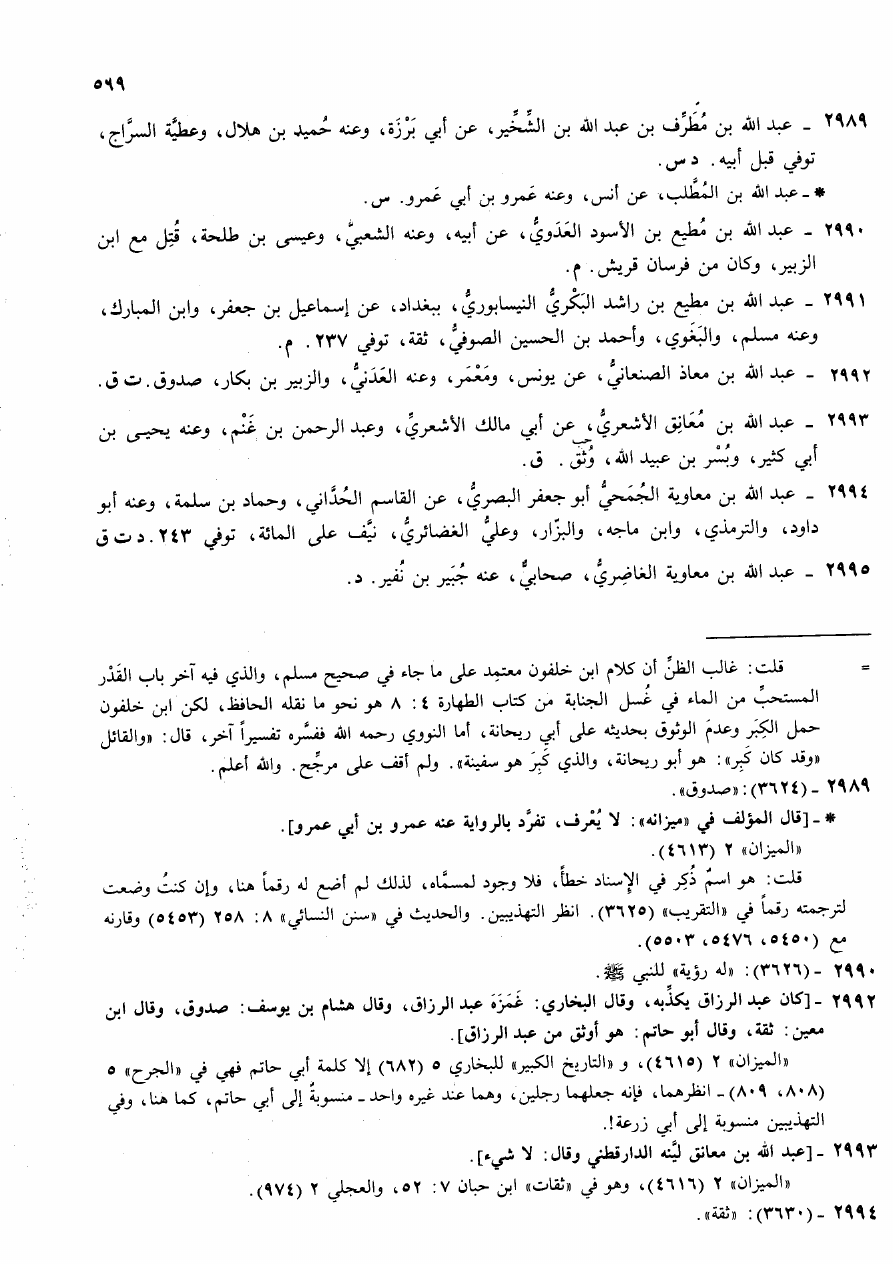 ٥٦٩
٢٩٨٩ ـ عبد الله بن مُطَرِّف بن عبد الله بن الشِّخِّير، عن أبي بَرْزَة، وعنه حُميد بن هلال، وعطيَّة السرَّاج،
توفي قبل أبيه. د س.
* ـ عبد الله بن المُطَّلب، عن أنس، وعنه عَمرو بن أبي عَمرو. س.
٢٩٩٠ ـ عبد الله بن مُطيع بن الأسود العَدَويُّ، عن أبيه، وعنه الشعبيُّ، وعيسى بن طلحة، قُتِل مع ابن
الزبير، وكان من فرسان قريش. م.
٢٩٩١ ـ عبد الله بن مطيع بن راشد البَكْريُّ النيسابوريُّ، ببغداد، عن إسماعيل بن جعفر، وابن المبارك،
وعنه مسلم، والبَغَوي، وأحمد بن الحسين الصوفيُّ، ثقة، توفي ٢٣٧. م.
٢٩٩٢ ـ عبد الله بن معاذ الصنعانيُّ، عن يونس، ومَعْمَر، وعنه العَدَنيُّ، والزبير بن بكار، صدوق. ت ق.
٢٩٩٣ ـ عبد الله بن مُعَانِق الأشعريُّ، عن أبي مالك الأشعريِّ، وعبد الرحمن بن غَنْم، وعنه يحيى بن
أبي كثير، وبُسْر بن عبيد الله، وُثِّق. ق.
٢٩٩٤ ـ عبد الله بن معاوية الجُمَحيُّ أبو جعفر البصريُّ، عن القاسم الحُدَّاني، وحماد بن سلمة، وعنه أبو
داود، والترمذي، وابن ماجه، والبزّار، وعليُّ الغضائريُّ، نيَّف على المائة، توفي ٢٤٣. د ت ق
٢٩٩٥ ـ عبد الله بن معاوية الغاضِريُّ، صحابيٌّ، عنه جُبَير بن نُفير. د.
= قلت: غالب الظنِّ أن كلام ابن خلفون معتمِد على ما جاء في صحيح مسلم، والذي فيه آخر باب القَدْر
المستحبِّ من الماء في غُسل الجنابة من كتاب الطهارة ٤: ٨ هو نحو ما نقله الحافظ، لكن ابن خلفون
حمل الكِبَر وعدمَ الوثوق بحديثه على أبي ريحانة، أما النووي رحمه الله ففسَّره تفسيراً آخر، قال: «والقائل
«وقد كان كَبِر»: هو أبو ريحانة، والذي كَبِرَ هو سفينة». ولم أقف على مرجِّح. والله أعلم.
٢٩٨٩ ـ (٣٦٢٤): «صدوق».
* ـ [قال المؤلف في «ميزانه»: لا يُعْرف، تفرَّد بالرواية عنه عمرو بن أبي عمرو].
«الميزان» ٢ (٤٦١٣).
قلت: هو اسمٌ ذُكِر في الإِسناد خطأً، فلا وجود لمسمَّاه، لذلك لم أضع له رقماً هنا، وإن كنتُ وضعت
لترجمته رقماً في «التقريب» (٣٦٢٥). انظر التهذيبين. والحديث في «سنن النسائي» ٨: ٢٥٨ (٥٤٥٣) وقارنه
مع (٥٤٥٠، ٥٤٧٦، ٥٥٠٣).
٢٩٩٠ ـ (٣٦٢٦): «له رؤية» للنبي ﷺ.
٢٩٩٢ ـ [كان عبد الرزاق يكذِّبه، وقال البخاري: غَمَزَهَ عبد الرزاق، وقال هشام بن يوسف: صدوق، وقال ابن
معين: ثقة، وقال أبو حاتم: هو أوثق من عبد الرزاق].
«الميزان» ٢ (٤٦١٥)، و «التاريخ الكبير» للبخاري ٥ (٦٨٢) إلا كلمة أبي حاتم فهي في «الجرح» ٥
(٨٠٨، ٨٠٩) ـ انظرهما، فإنه جعلهما رجلين، وهما عند غيره واحد ـ منسوبةٌ إلى أبي حاتم، كما هنا، وفي
التهذيبين منسوبة إلى أبي زرعة!.
٢٩٩٣ ـ [عبد الله بن معانق ليَّنه الدارقطني وقال: لا شيء].
«الميزان» ٢ (٤٦١٦)، وهو في «ثقات» ابن حبان ٧: ٥٢، والعجلي ٢ (٩٧٤).
٢٩٩٤ ـ (٣٦٣٠): «ثقة».